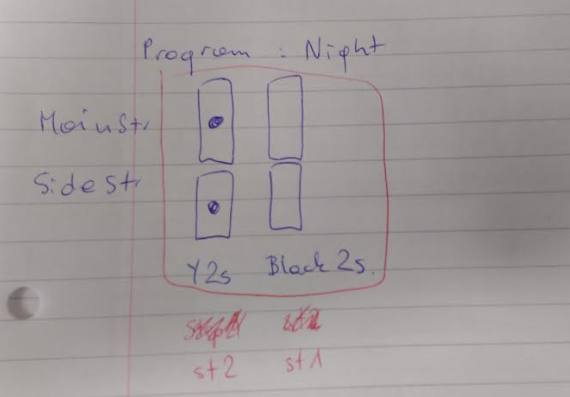 Program : Night
Main Str.
Side Str.
Y 2s Black 2s.
st2 st1